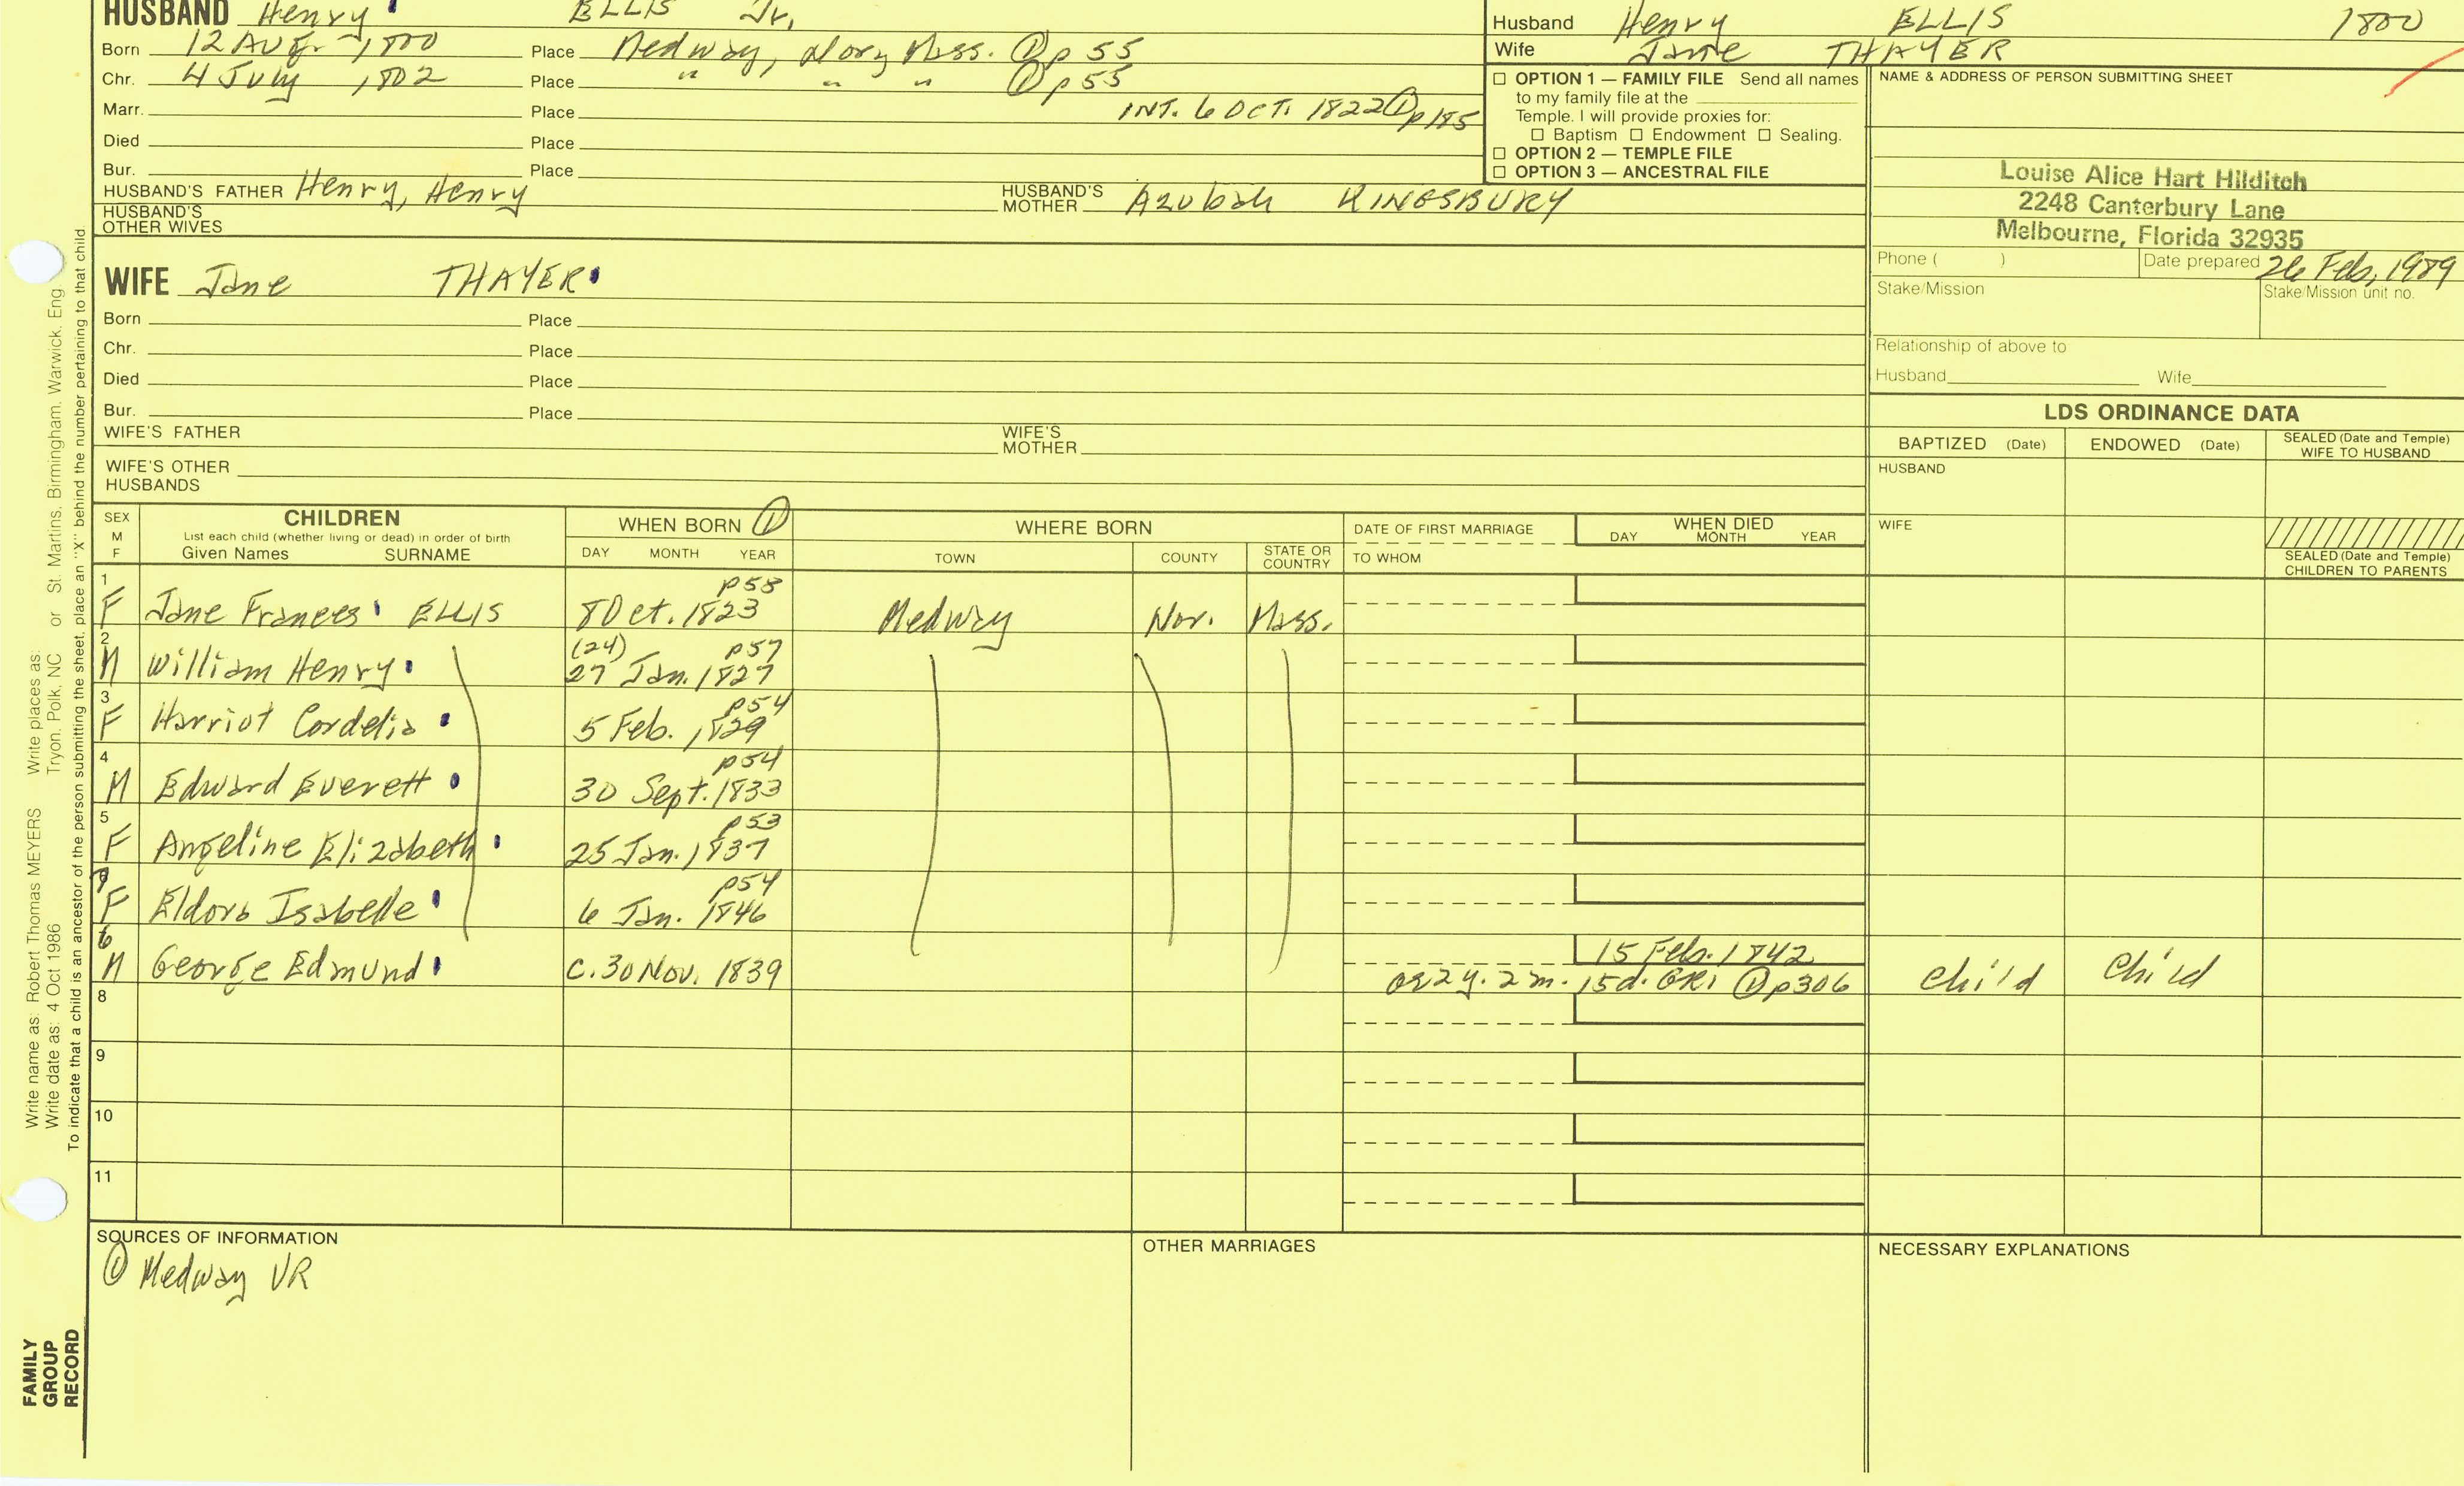 HUSBAND Henry ELLIS Jr.
Born 12 Aug. 1800 Place Medway, Nor, Mass. ① p 55
Chr. 4 July 1802 Place " " " ① p 55
Marr. Place INT. 6 OCT. 1822 ① p 185
Died Place
Bur. Place
HUSBAND'S FATHER Henry, Henry HUSBAND'S MOTHER Azubah KINGSBURY
HUSBAND'S OTHER WIVES
Husband Henry ELLIS 1800
Wife Jane THAYER
☐ OPTION 1 — FAMILY FILE Send all names
to my family file at the
Temple. I will provide proxies for:
☐ Baptism ☐ Endowment ☐ Sealing.
☐ OPTION 2 — TEMPLE FILE
☐ OPTION 3 — ANCESTRAL FILE
NAME & ADDRESS OF PERSON SUBMITTING SHEET
Louise Alice Hart Hilditch
2248 Canterbury Lane
Melbourne, Florida 32935
Phone ( ) Date prepared 26 Feb, 1989
Stake/Mission Stake/Mission unit no.
Relationship of above to
Husband Wife
WIFE Jane THAYER
Born Place
Chr. Place
Died Place
Bur. Place
WIFE'S FATHER WIFE'S MOTHER
WIFE'S OTHER HUSBANDS
LDS ORDINANCE DATA
BAPTIZED (Date) ENDOWED (Date) SEALED (Date and Temple) WIFE TO HUSBAND
HUSBAND
WIFE
SEALED (Date and Temple) CHILDREN TO PARENTS
SEX M F
CHILDREN
List each child (whether living or dead) in order of birth
Given Names SURNAME
WHEN BORN ①
DAY MONTH YEAR
WHERE BORN
TOWN COUNTY STATE OR COUNTRY
DATE OF FIRST MARRIAGE
TO WHOM
WHEN DIED
DAY MONTH YEAR
1 p55
F Jane Frances ELLIS 8 Oct. 1823 Medway Nor. Mass.
2 (24) p57
M William Henry 27 Jan. 1827
3 p54
F Harriot Cordelia 5 Feb. 1829
4 p54
M Edward Everett 30 Sept. 1833
5 p53
F Angeline Elizabeth 25 Jan. 1837
7 p54
F Eldora Isabelle 6 Jan. 1846
6 15 Feb. 1842
M George Edmund c. 30 Nov. 1839 ae 2y. 2m. 15d. GR1 ① p306 Child Child
8
9
10
11
SOURCES OF INFORMATION
① Medway VR
OTHER MARRIAGES
NECESSARY EXPLANATIONS
Write name as: Robert Thomas MEYERS Write places as: Tryon, Polk, NC or St. Martins, Birmingham, Warwick, Eng
Write date as: 4 Oct 1986
To indicate that a child is an ancestor of the person submitting the sheet, place an "X" behind the number pertaining to that child
FAMILY
GROUP
RECORD